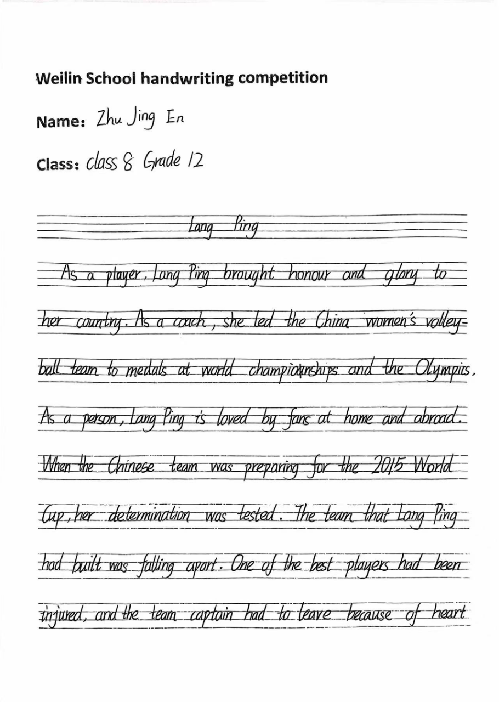 Weilin School handwriting competition
Name: Zhu Jing En
Class: class 8 Grade 12
Lang Ping
As a player, Lang Ping brought honour and glory to
her country. As a coach, she led the China women's volley-
ball team to medals at world championships and the Olympics.
As a person, Lang Ping is loved by fans at home and abroad.
When the Chinese team was preparing for the 2015 World
Cup, her determination was tested. The team that Lang Ping
had built was falling apart. One of the best players had been
injured, and the team captain had to leave because of heart